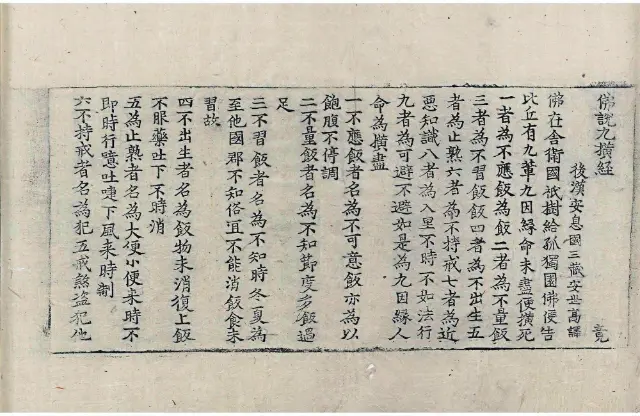 佛說九橫経
後漢安息國三藏安世髙譯 竟
佛在舍衛國祇樹給孤獨園佛便告
比丘有九軰九因縁命未盡便橫死
一者為不應飯為飯二者為不量飯
三者為不習飯飯四者為不出生五
者為止熟六者為不持戒七者為近
惡知識八者為入里不時不如法行
九者為可避不避如是為九因縁人
命為橫盡
一不應飯者名為不可意飯亦為以
飽腹不停調
二不量飯者名為不知節度多飯過
足
三不習飯者名為不知時冬夏為
至他國郡不知俗宜不能消飯食未
習故
四不出生者名為飯物未消復上飯
不服藥吐下不時消
五為止熟者名為大便小便来時不
即時行噫吐啑下風来時制
六不持戒者名為犯五戒煞盗犯他